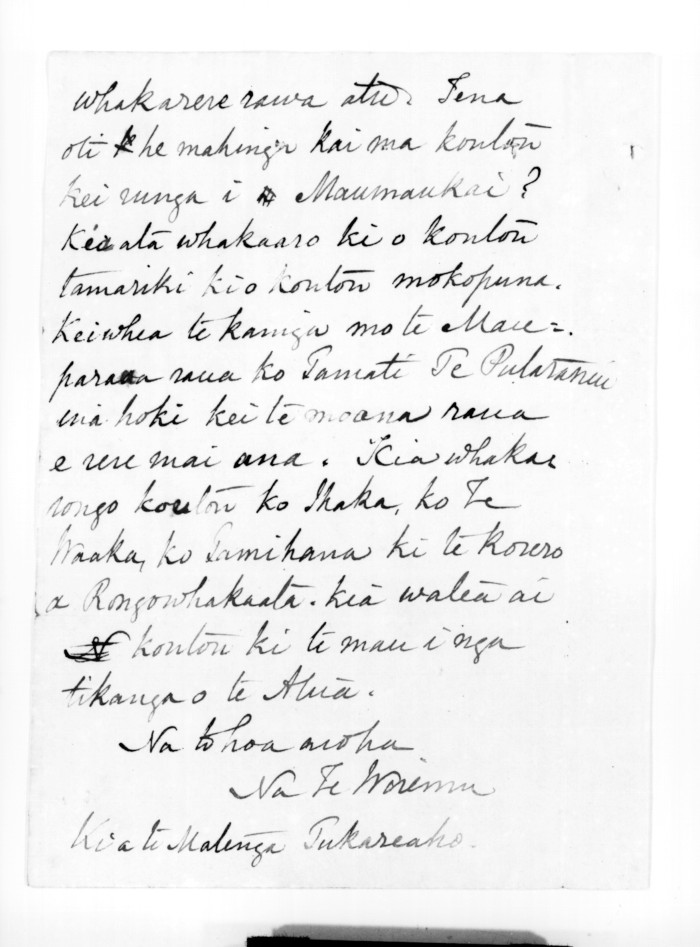 whakarere rawa atu. Tena
oti he mahinga kai ma koutou
kei runga i Maumaukai?
Kia ata whakaaro ki o koutou
tamariki ki o koutou mokopuna.
Kei whea te kainga mo te Mau=
paraoa raua ko Tamati Te
ina hoki kei te moana raua
e rere mai ana. Kia whaka
rongo koutou ko Ihaka, ko Te
Waaka, ko Tamihana ki te korero
a Rongowhakaata. kia watea ai
koutou ki te mau i nga
tikanga o te Atua.
Na to hoa aroha
Na Te Wiremu
Ki a te Matenga Tukareaho.